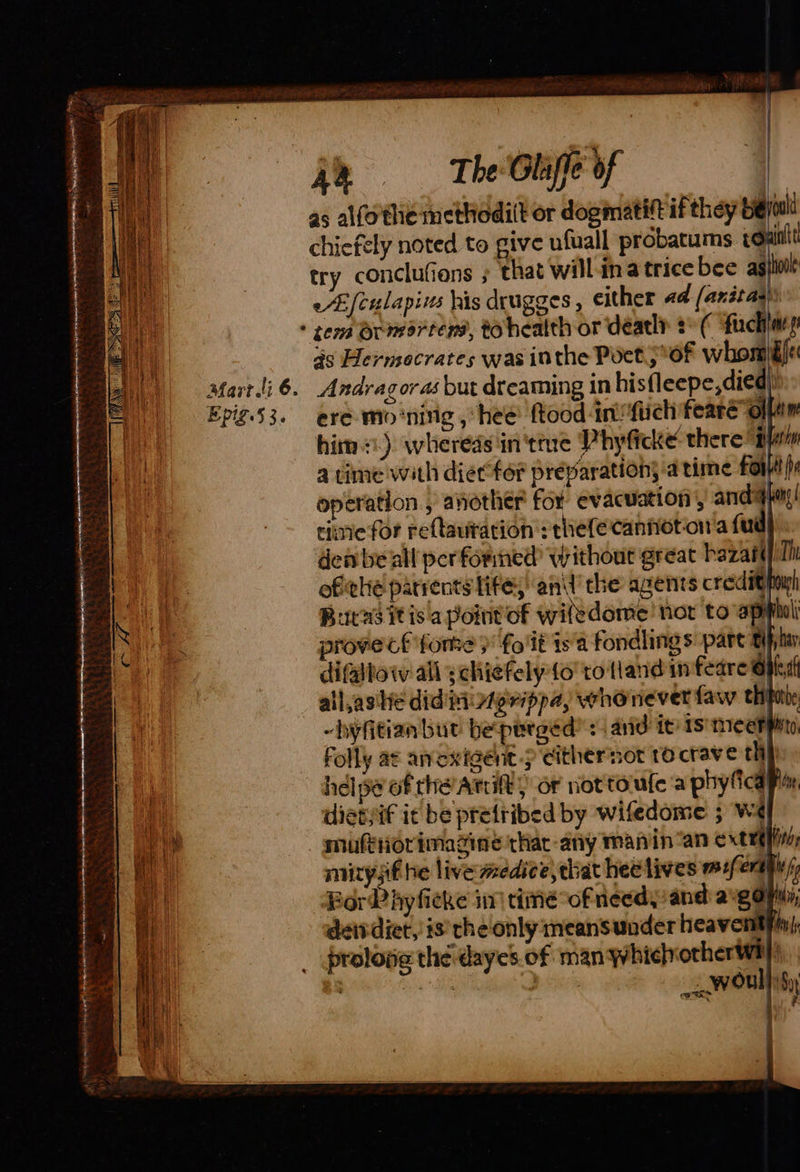 44 The Glasse of
as also the methodist or dogmatist if they be
chiefely noted to give usuall probatums to
try conclusions ; that will in a trice bee as
Æsculapius his drugges, either ad sanita-
* tem or mortem, to health or death : ( such
as Hermocrates was in the Poet, of whom
Mart. li 6. Andragoras but dreaming in his sleepe, died
Epig. 53. ere morning, hee stood in such feare of
him :) whereas in true Physicke there is
a time with diet for preparation, a time for
operation, another for evacuation, and a
time for restauration : these cannot on a sud
den be all performed without great hazard
of the patients life, and the agents credit
But as it is a point of wisedome not to ap
prove of some, so it is a fondlings part to
disallow all ; chiefely so to stand in feare of
all, as he did in Agrippa, who never saw the
Physitian but he purged : and it is meere
folly at an exigent, either not to crave the
helpe of the Artist, or not to use a physical
diet, if it be prescribed by wisedome ; we
must not imagine that any man in an extre
mity, if he live medicè, that hee lives miserè
For Physicke in time of need, and a gol
den diet, is the only means under heaven to
prolong the dayes of man which otherwise
would